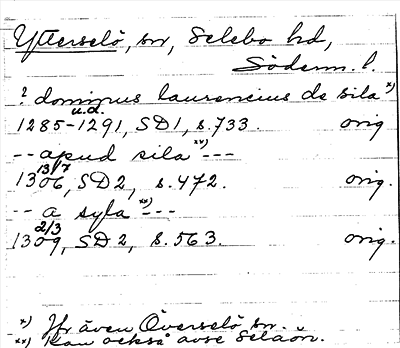 Ytterselö, sn, Selebo hd,
Söderm. l.
? dominus laurencius de sila x)
u.d.
1285-1291, SD1, s. 733. orig.
-- apud sila xx) ---
13/7
1306, SD2, s. 472. orig.
-- a syla xx) ---
2/3
1309, SD2, s. 563. orig.
x) Jfr även Överselö sn.
xx) Kan också avse Selaön.